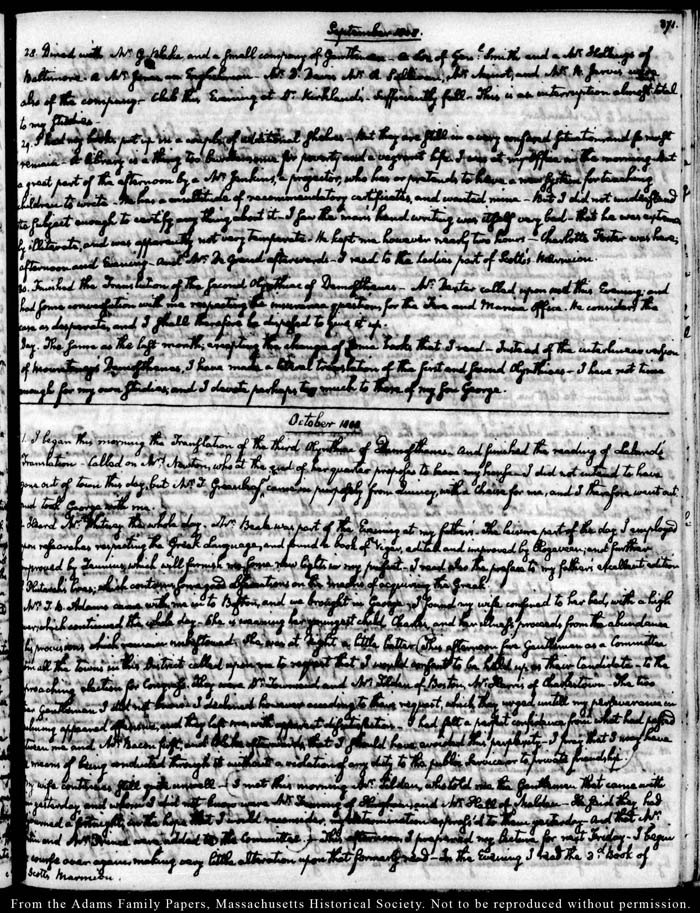 September 1808.
371.
28. Dined with Mr. G. Blake, and a small company of Gentlemen - A Son of Genl. Smith and a Mr. Hollings of
Baltimore. A Mr. Jones an Englishman - Mr. I. Davis Mr. R. Sullivan, Mr. Minot, and Mr. Jarvis were
also of the company. Club this Evening at Dr. Kirkland's. Sufficiently full - This is an interruption almost total
to my Studies.
29. I had my books put up in a couple of additional shelves - But they are still in a very confused situation and so must
remain - A library is a thing too burdensome for poverty and a vagrant life. I was at my Office in the morning. But
a great part of the afternoon by a Mr. Jenkins, a projector, who has or pretends to have a new System for teaching
children to write. He has a multitude of recommendatory certificates, and wanted mine - But I did not understand
the subject enough to certify any thing about it - I saw the man's hand writing was itself very bad - that he was extreme
ly illiterate, and was apparently not very temperate. He kept me however nearly two hours - Charlotte Foster was here,
afternoon and Evening - And Mr. De Grand afterwards - I read to the ladies part of Scott's Marmion.
30. Finished the Translation of the Second Olynthiac of Demosthenes - Mr. Dexter called upon me this Evening; and
had some conversation with me respecting the insurance question, for the Fire and Marine Office. He considers the
case as desperate, and I shall therefore be disposed to give it up.
Day. The same as the last month; excepting the change of some books that I read - Instead of the interlinear version
of Demosthenes, I have made a literal translation of the first and second Olynthiacs - I have not time
enough for my own Studies; and I devote perhaps too much to those of my Son George.
October 1808
1. I began this morning the Translation of the third Olynthiac of Demosthenes. And finished the reading of Leland's
Translation - Called on Mrs. Newton, who at the end of her quarter proposes to leave my house - I did not intend to have
gone out of town this day, but Mr. T. Greenleaf, came in purposely from Quincy, with a Chaise for me, and I therefore went out
and took George with me.
Heard Mr. Whitney the whole day. Mrs. Beale was part of the Evening at my father's. The leisure part of the day I employed
upon researches respecting the Greek Language, and found a book of Viger, edited and improved by Hogeveen; and further
improved by Zeunius, which will furnish me some new lights in my pursuit - I read also the preface to my father's excellent edition
which contains some good observations on the means of acquiring the Greek.
Mr. T. B. Adams came with me in to Boston, and we brought in George - I found my wife confined to her bed, with a high
fever, which continued the whole day. She is weaning her youngest child, Charles, and her illness proceeds from the abundance
She was at night a little better. This afternoon five Gentlemen as a Committee
from all the towns in this District called upon me to request that I would consent to be held up as their Candidate - to the
approaching election for Congress. They were Dr. Townsend and Mr. Tilden of Boston, Mr. Harris of Charlestown - The two
other Gentlemen I did not know - I declined however acceding to their request, which they urged untill my perseverance in
declining appeared offensive, and they left me with apparent dissatisfaction - I had felt a perfect confidence, from what had passed
between me and Mr. Bacon first, and Blake afterwards, that I should have avoided this perplexity - I pray that I may have
the means of being conducted through it without a violation of any duty to the public Service or to private friendship.
My wife continues still quite unwell - I met this morning Mr. Tilden, who told me the Gentlemen that came with
him yesterday and whom I did not know were Mr. and Mr. Hall of Malden - He said they had
adjourned a fortnight, in the hope that I would reconsider, my determination expressed to them yesterday - And that Mr.
and Mr. were added to the Committee. - This afternoon I prepared my Lecture for next Friday - I began
the course over again, making very little alteration upon that formerly read - In the Evening I read the 3d. Book of
Scott's Marmion.
From the Adams Family Papers, Massachusetts Historical Society. Not to be reproduced without permission.